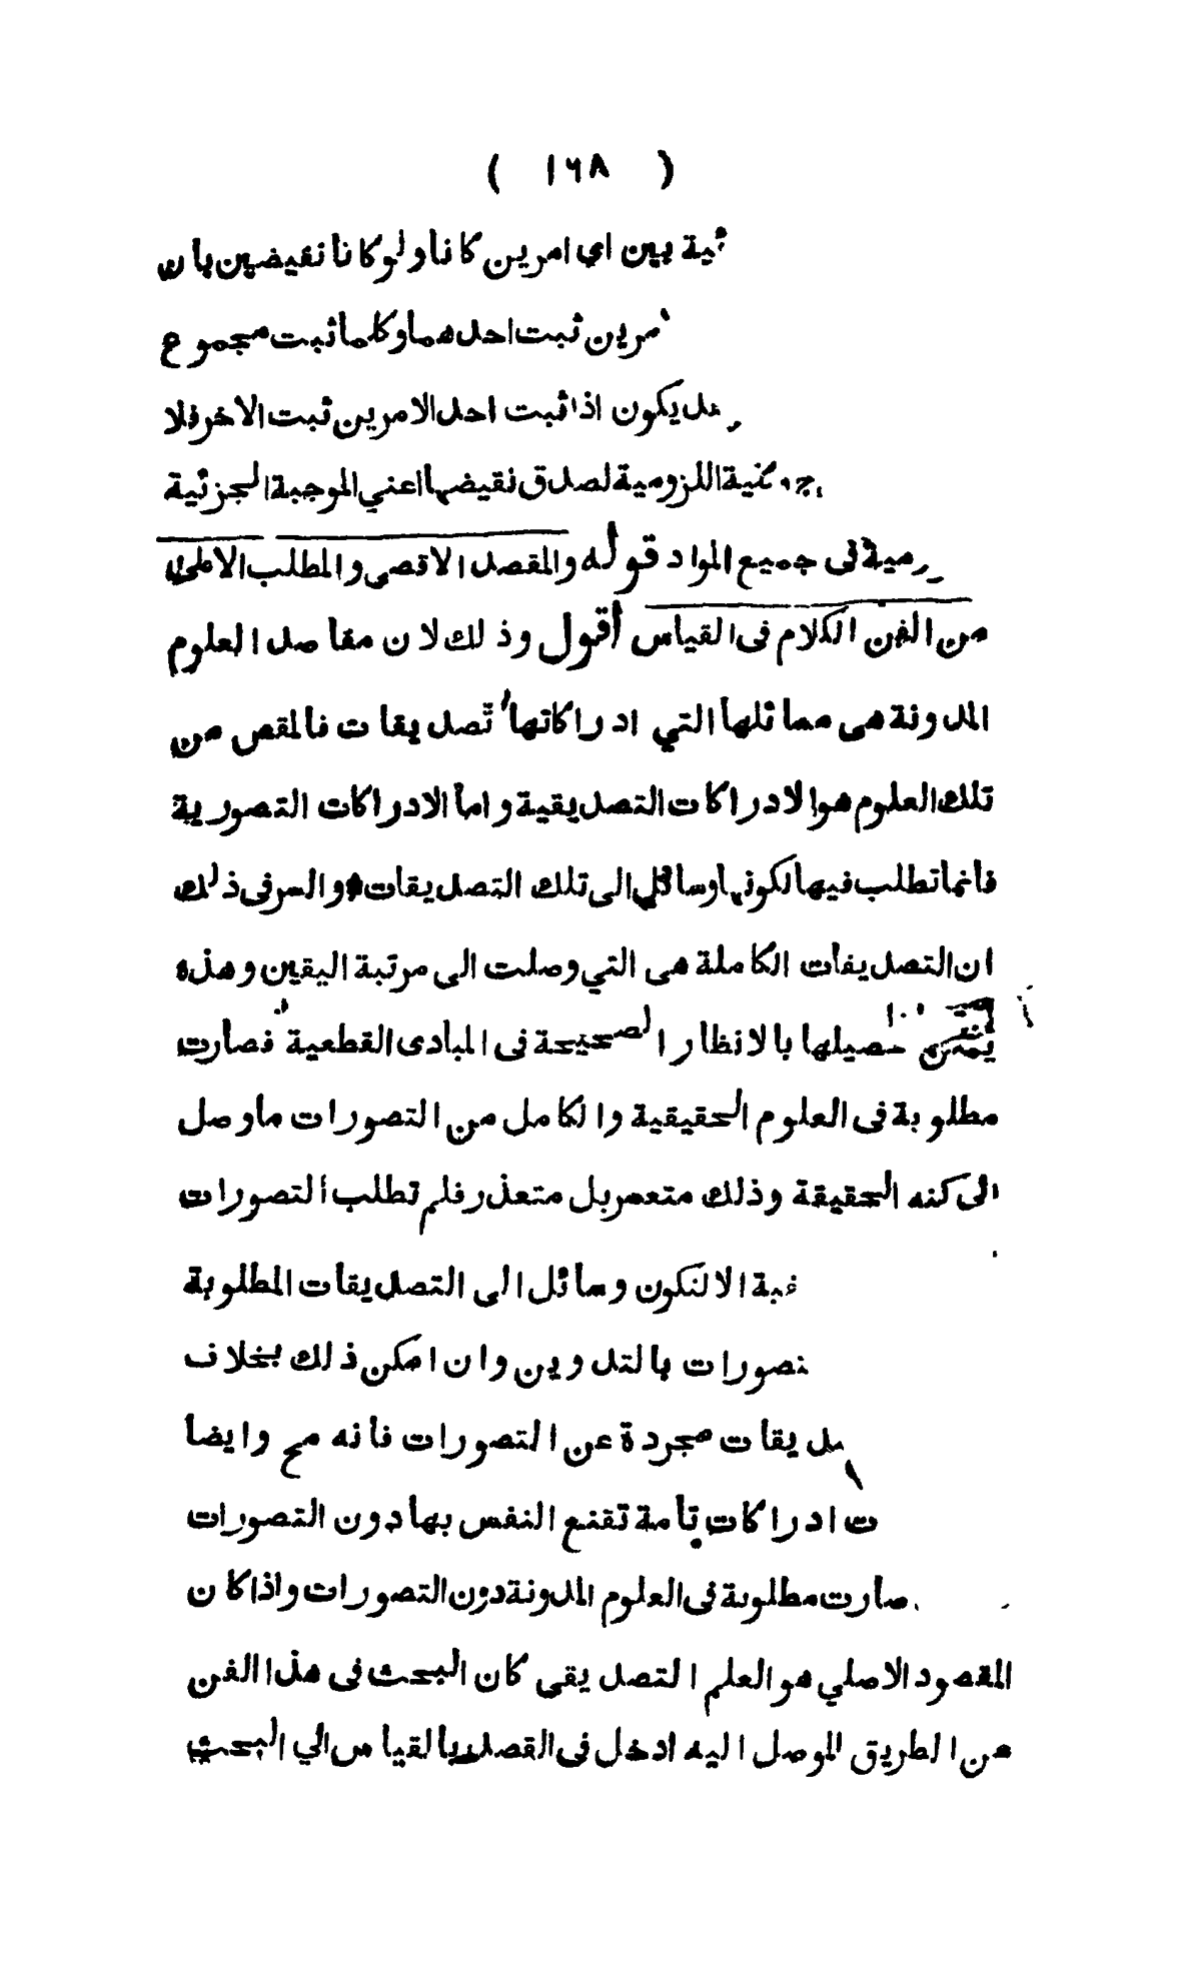 ( ١٦٨ )
ئية بين اي امرين كانا ولو كانا نقيضين بان
مرين ثبت احدهما وكلما ثبت مجموع
يكون اذا ثبت احد الامرين ثبت الاخر فلا
اللزومية لصدق نقيضها اعني الموجبة الجزئية
مية فى جميع المواد قوله والمقصد الاقصى والمطلب الاعلى
من الفن الكلام فى القياس أقول وذلك لان مقاصد العلوم
المدونة هى مسائلها التي ادراكاتها تصديقات فالمقص من
تلك العلوم هو الادراكات التصديقية واما الادراكات التصورية
فانما تطلب فيها لكونها وسائل الى تلك التصديقات والسر فى ذلك
ان التصديقات الكاملة هى التي وصلت الى مرتبة اليقين وهذه
تحصيلها بالانظار الصحيحة فى المبادى القطعية فصارت
مطلوبة فى العلوم الحقيقية والكامل من التصورات ما وصل
الى كنه الحقيقة وذلك متعسر بل متعذر فلم تطلب التصورات
الا لتكون وسائل الى التصديقات المطلوبة
تصورات بالتدوين وان امكن ذلك بخلاف
ديقات مجردة عن التصورات فانه مح وايضا
ت ادراكات تامة تقنع النفس بها دون التصورات
صارت مطلوبة فى العلوم المدونة دون التصورات واذا كان
المقصود الاصلي هو العلم التصديقى كان البحث فى هذا الفن
عن الطريق الموصل اليه ادخل فى القصد بالقياس الي البحث